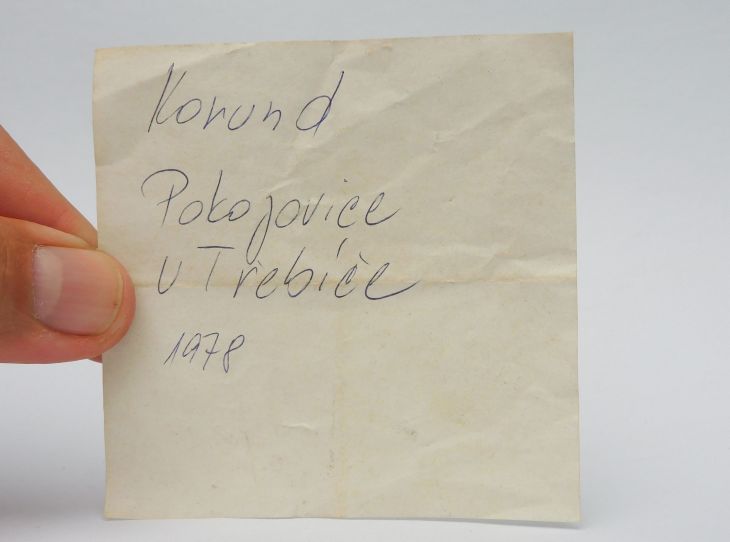 Korund
Pokojovice
u Třebíče
1978